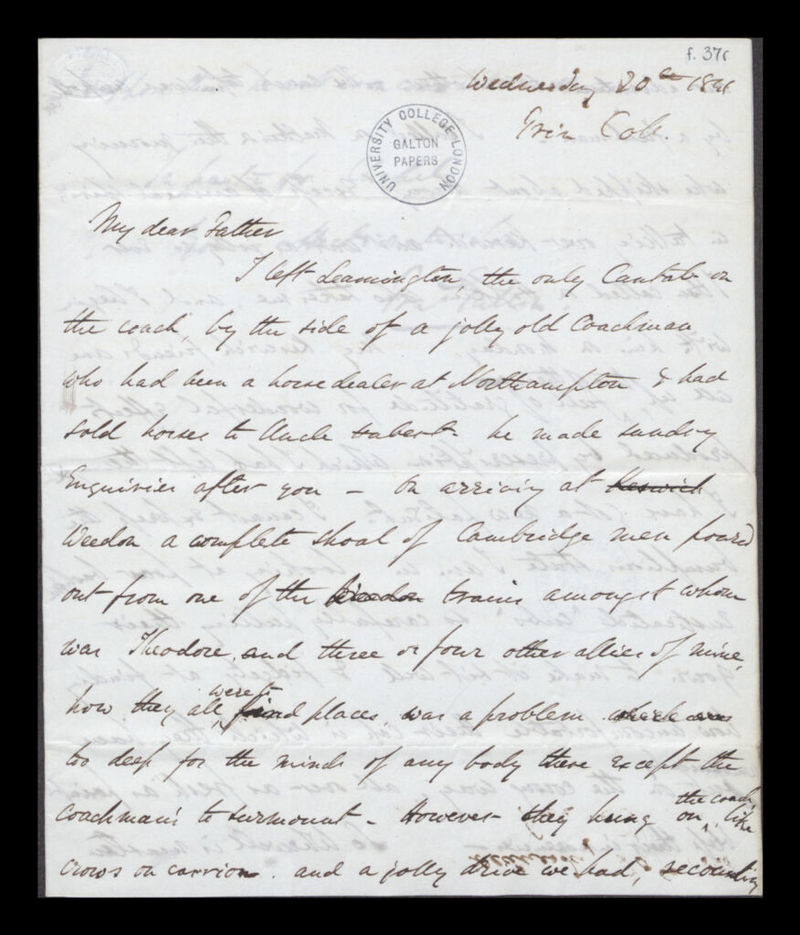 f. 37r
Wednesday 20th 184
Trin Coll.
UNIVERSITY COLLEGE LONDON
GALTON
PAPERS
My dear Father
I left Leamington, the only Cantab on
the coach, by the side of a jolly old Coachman
who had been a horsedealer at Northampton & had
sold horses to Uncle Hubert he made sundry
Enquiries after you – On arriving at Keswick
Weedon a complete shoal of Cambridge men poured
out from one of the trains amongst whom
was Theodore, and three or four other allies of mine,
how they all were to find places, was a problem which was
too deep for the minds of any body there Except the
Coachman's to surmount – However they hung on the coach, like
crows on carrion. and a jolly drive we had, recounting